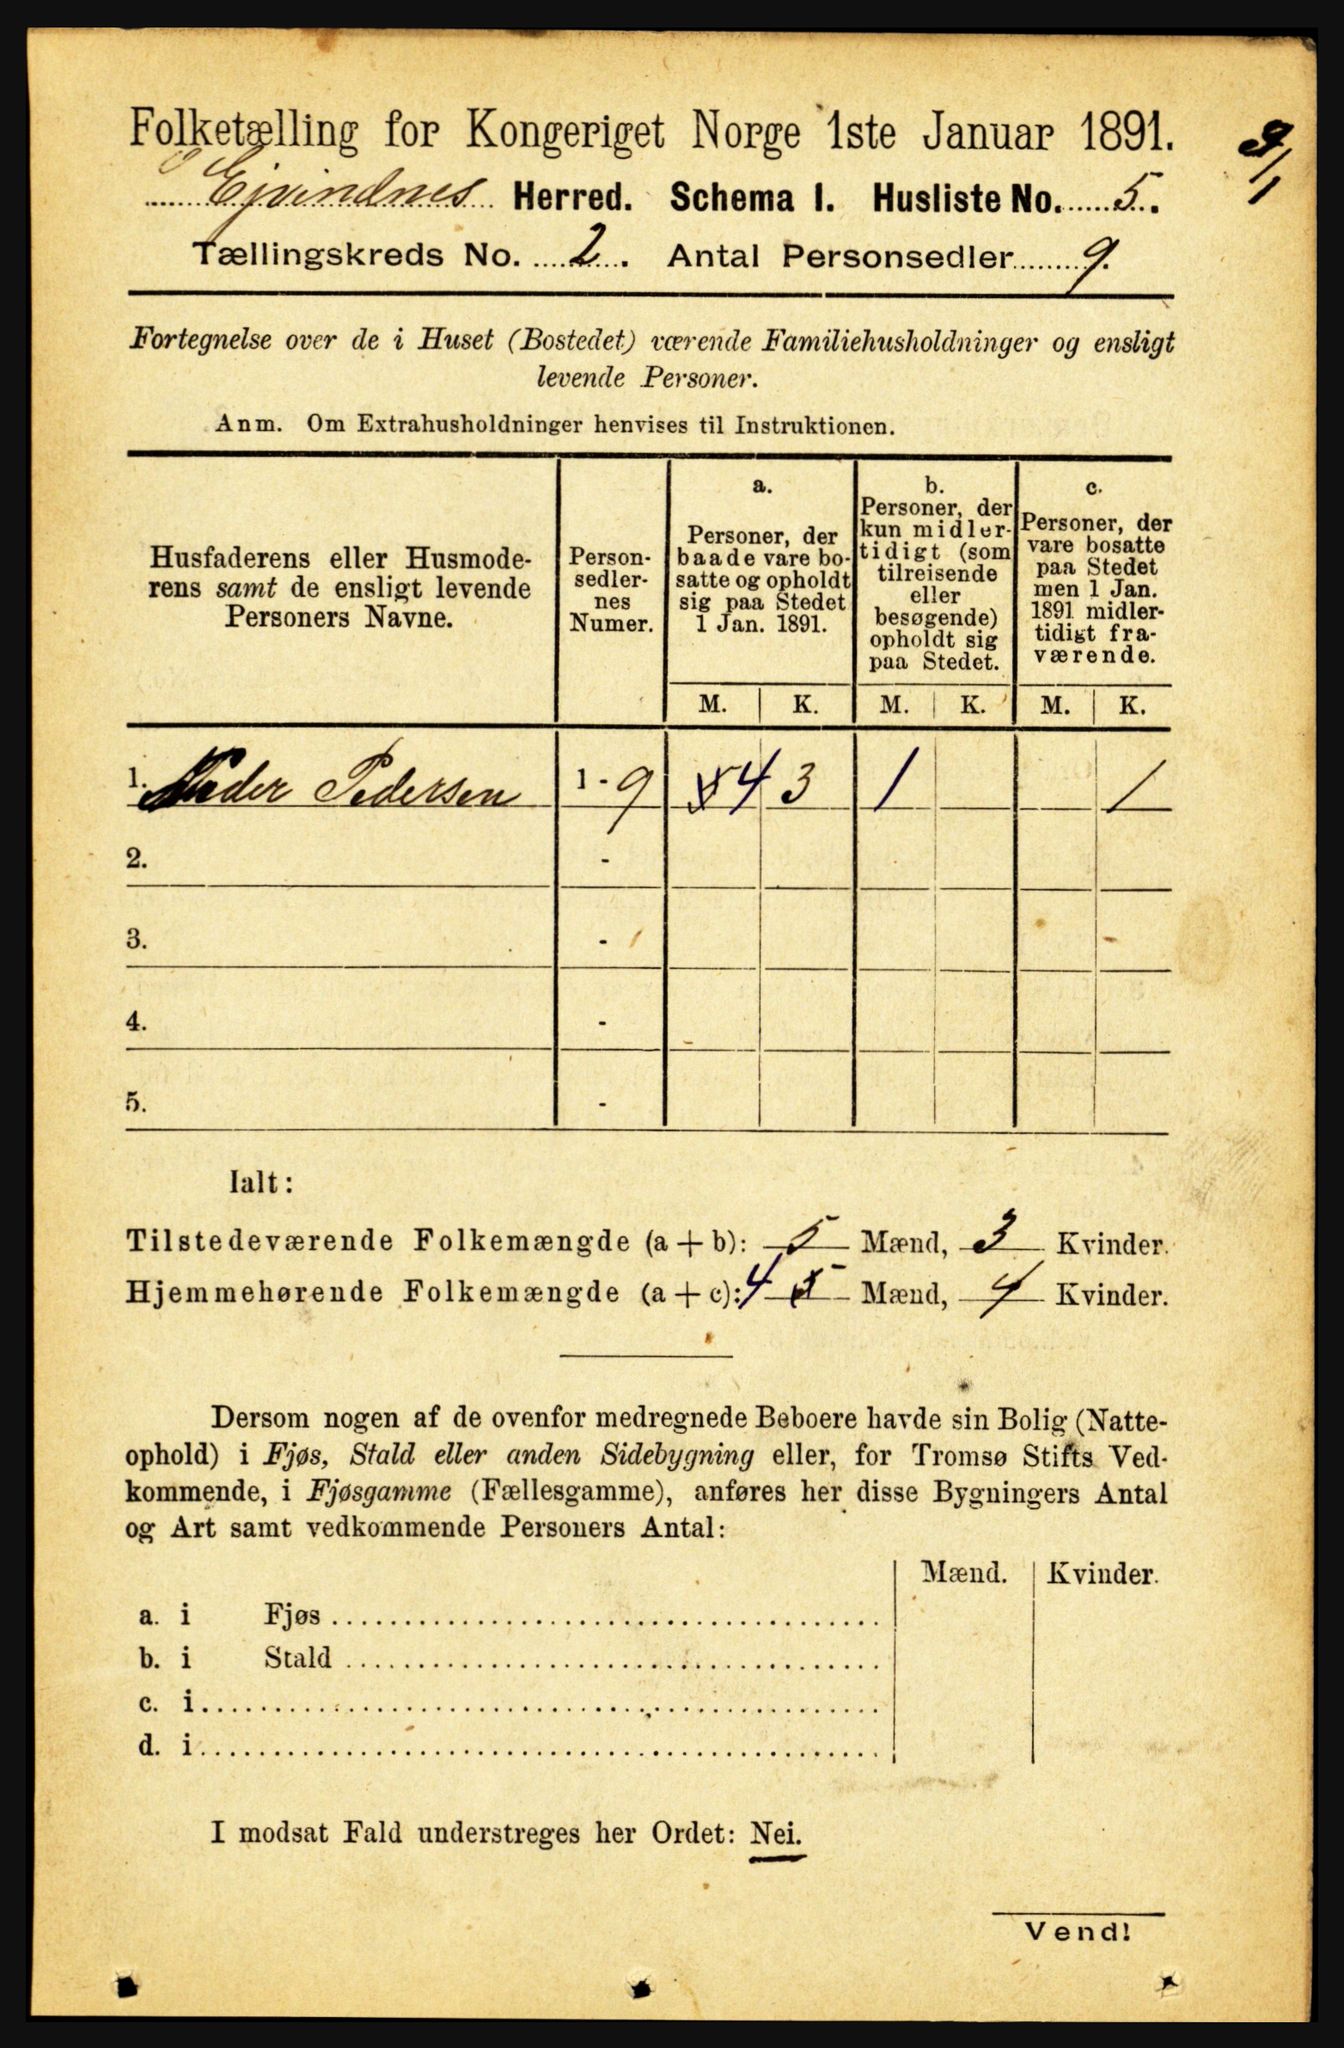 Folketælling for Kongeriget Norge 1ste Januar 1891.
9/1
Ejvindnes Herred. Schema I. Husliste No. 5.
Tællingskreds No. 2. Antal Personsedler 9.
Fortegnelse over de i Huset (Bostedet) værende Familiehusholdninger og ensligt
levende Personer.
Anm. Om Extrahusholdninger henvises til Instruktionen.
Husfaderens eller Husmode-
rens samt de ensligt levende
Personers Navne.
Person-
sedler-
nes
Numer.
a.
Personer, der
baade vare bo-
satte og opholdt
sig paa Stedet
1 Jan. 1891.
b.
Personer, der
kun midler-
tidigt (som
tilreisende
eller
besøgende)
opholdt sig
paa Stedet.
c.
Personer, der
vare bosatte
paa Stedet
men 1 Jan.
1891 midler-
tidigt fra-
værende.
M. K. M. K. M. K.
1. Peder Pedersen 1 - 9 5 4 3 1 1
2. -
3. -
4. -
5. -
Ialt:
Tilstedeværende Folkemængde (a + b): 5 Mænd, 3 Kvinder.
Hjemmehørende Folkemængde (a + c): 4 5 Mænd, 4 Kvinder.
Dersom nogen af de ovenfor medregnede Beboere havde sin Bolig (Natte-
ophold) i Fjøs, Stald eller anden Sidebygning eller, for Tromsø Stifts Ved-
kommende, i Fjøsgamme (Fællesgamme), anføres her disse Bygningers Antal
og Art samt vedkommende Personers Antal:
Mænd. Kvinder.
a. i Fjøs
b. i Stald
c. i
d. i
I modsat Fald understreges her Ordet: Nei.
Vend!